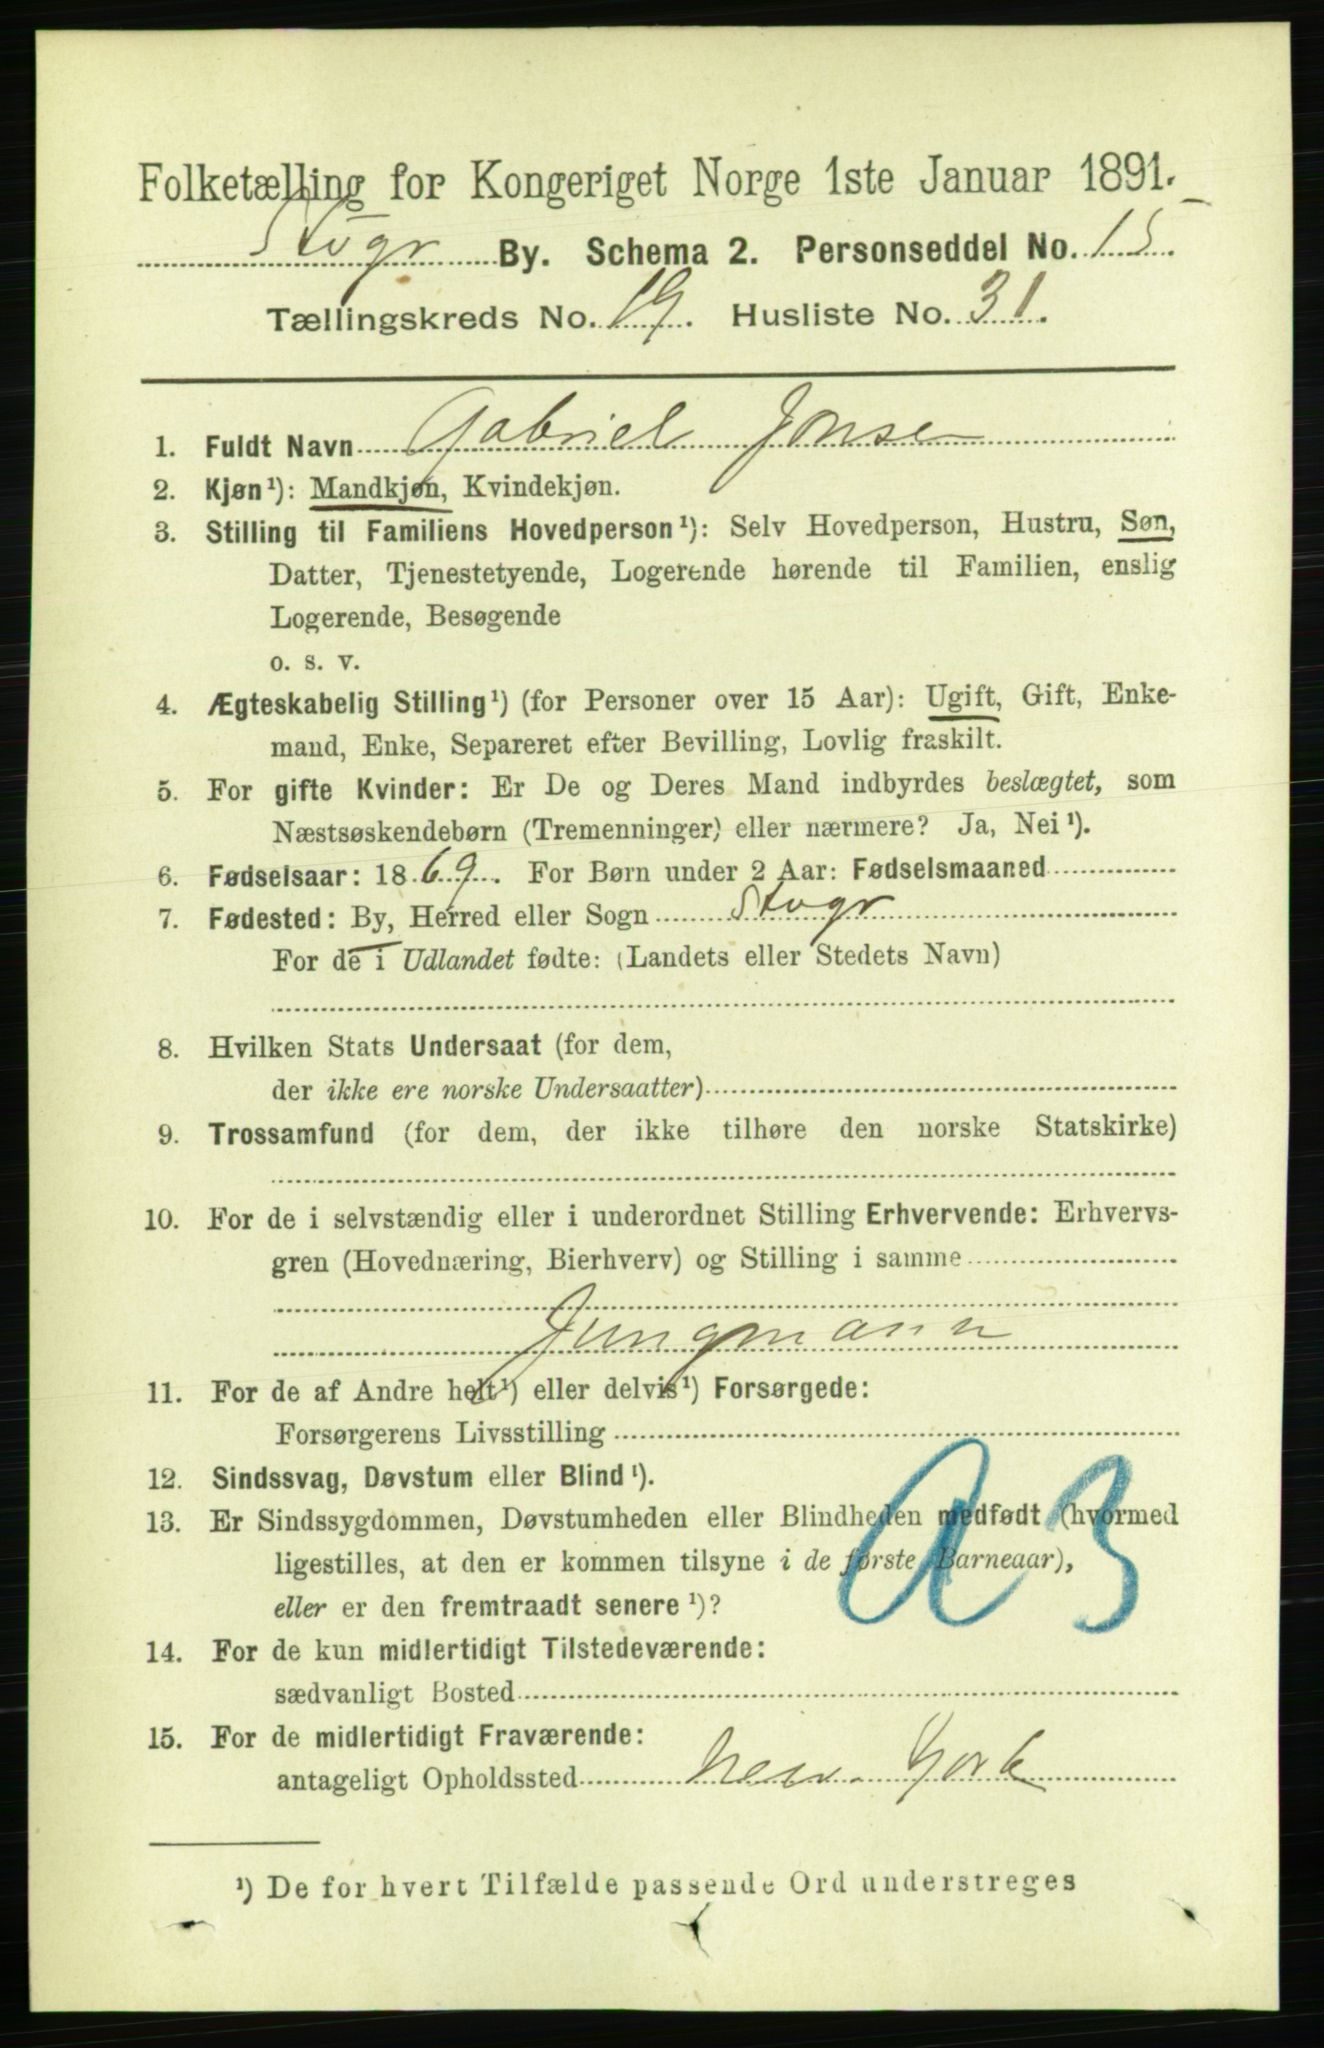 Folketælling for Kongeriget Norge 1ste Januar 1891.
Stvgr By. Schema 2. Personseddel No. 15
Tællingskreds No. 19. Husliste No. 31.
1. Fuldt Navn Gabriel Jonsen
2. Kjøn¹): Mandkjøn, Kvindekjøn.
3. Stilling til Familiens Hovedperson¹): Selv Hovedperson, Hustru, Søn,
Datter, Tjenestetyende, Logerende hørende til Familien, enslig
Logerende, Besøgende
o. s. v.
4. Ægteskabelig Stilling¹) (for Personer over 15 Aar): Ugift, Gift, Enke-
mand, Enke, Separeret efter Bevilling, Lovlig fraskilt.
5. For gifte Kvinder: Er De og Deres Mand indbyrdes beslægtet, som
Næstsøskendebørn (Tremenninger) eller nærmere? Ja, Nei¹).
6. Fødselsaar: 1869. For Børn under 2 Aar: Fødselsmaaned
7. Fødested: By, Herred eller Sogn Stvgr
For de i Udlandet fødte: (Landets eller Stedets Navn)
8. Hvilken Stats Undersaat (for dem,
der ikke ere norske Undersaatter)
9. Trossamfund (for dem, der ikke tilhøre den norske Statskirke)
10. For de i selvstændig eller i underordnet Stilling Erhvervende: Erhvervs-
gren (Hovednæring, Bierhverv) og Stilling i samme
Jungmann
11. For de af Andre helt¹) eller delvis¹) Forsørgede:
Forsørgerens Livsstilling
12. Sindssvag, Døvstum eller Blind¹).
13. Er Sindssygdommen, Døvstumheden eller Blindheden medfødt (hvormed
ligestilles, at den er kommen tilsyne i de første Barneaar),
eller er den fremtraadt senere¹)?
a 3
14. For de kun midlertidigt Tilstedeværende:
sædvanligt Bosted
15. For de midlertidigt Fraværende:
antageligt Opholdssted New York
¹) De for hvert Tilfælde passende Ord understreges